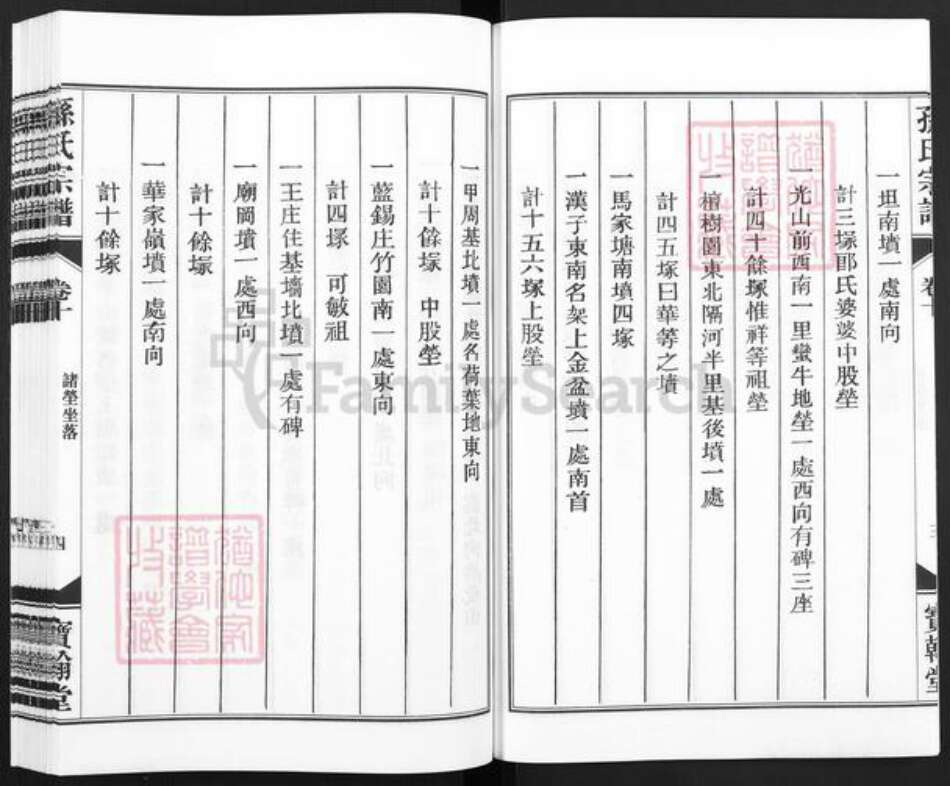 孫氏宗譜
卷十
三
寶翰堂
一坦南墳一處南向
計三塚郎氏婆婆中股塋
一光山前西南一里蠻牛地塋一處西向有碑三座
計四十餘塚惟祥等祖塋
一檀樹園東北隔河半里基後墳一處
計四五塚曰華等之墳
一馬家塘南墳四塚
一漢子東南名架上金盆墳一處南首
計十五六塚上股塋
一甲周基北墳一處名荷葉地東向
計十餘塚 中股塋
一藍錫庄竹園南一處東向
計四塚 可敏祖
一王庄住基墻北墳一處有碑
一廟岡墳一處西向
計十餘塚
一華家嶺墳一處南向
計十餘塚
孫氏宗譜
卷十
諸塋坐落
四
寶翰堂
譜學會
收藏
FamilySearch